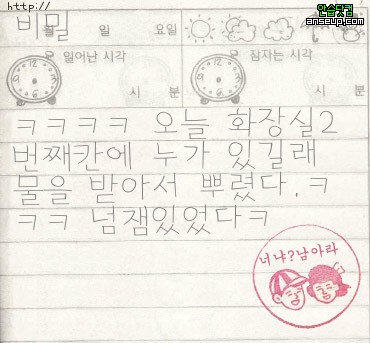 http://
안습닷컴
anseup.com
비밀
월 일 요일
일어난 시각
잠자는 시각
시 분
시 분
ㅋㅋㅋㅋ 오늘 화장실2
번째칸에 누가 있길래
물을 받아서 뿌렸다.ㅋ
ㅋㅋ 넘잼있었다ㅋ
너냐?남아라